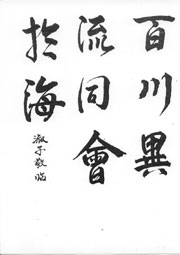 百川異
流同會
於海
淑子敬臨